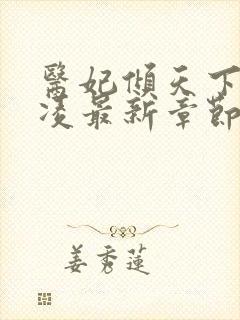 醫妃傾天下
凌最新章節
姜秀蓮